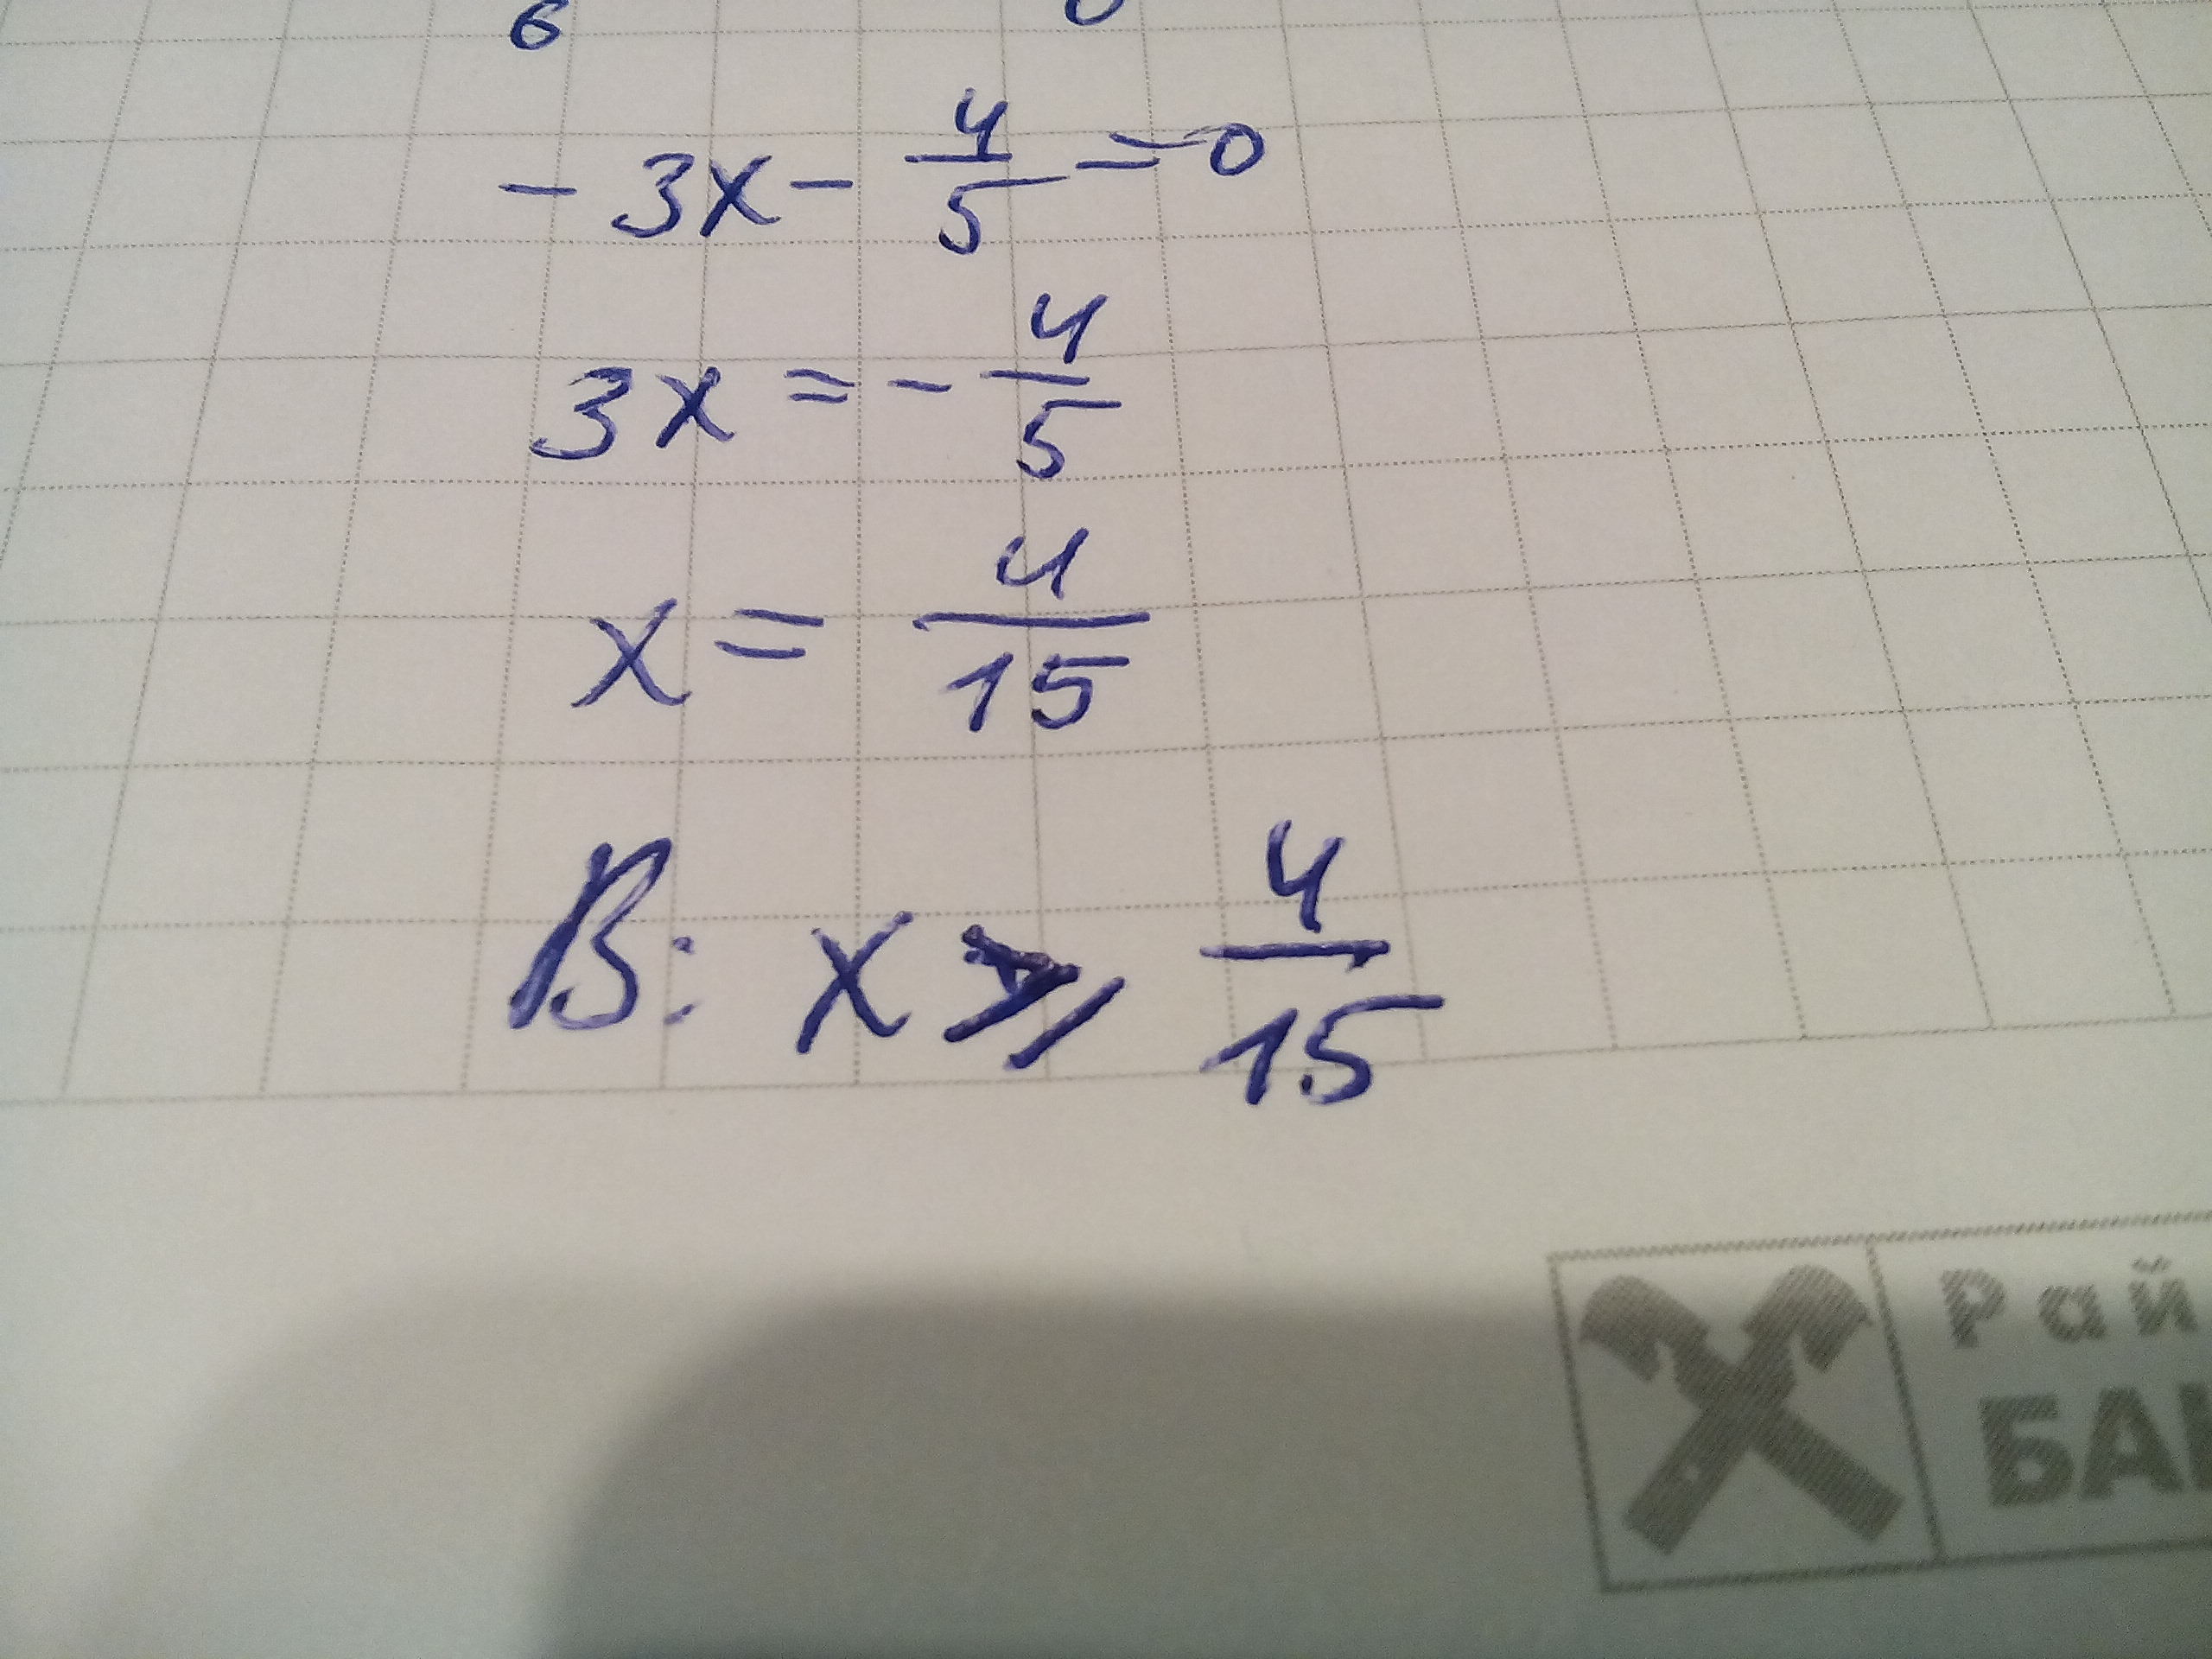 6
- 3x - 4/5 = 0
3x = - 4/5
x = 4/15
В: x ⩾ 4/15
Рай
БА